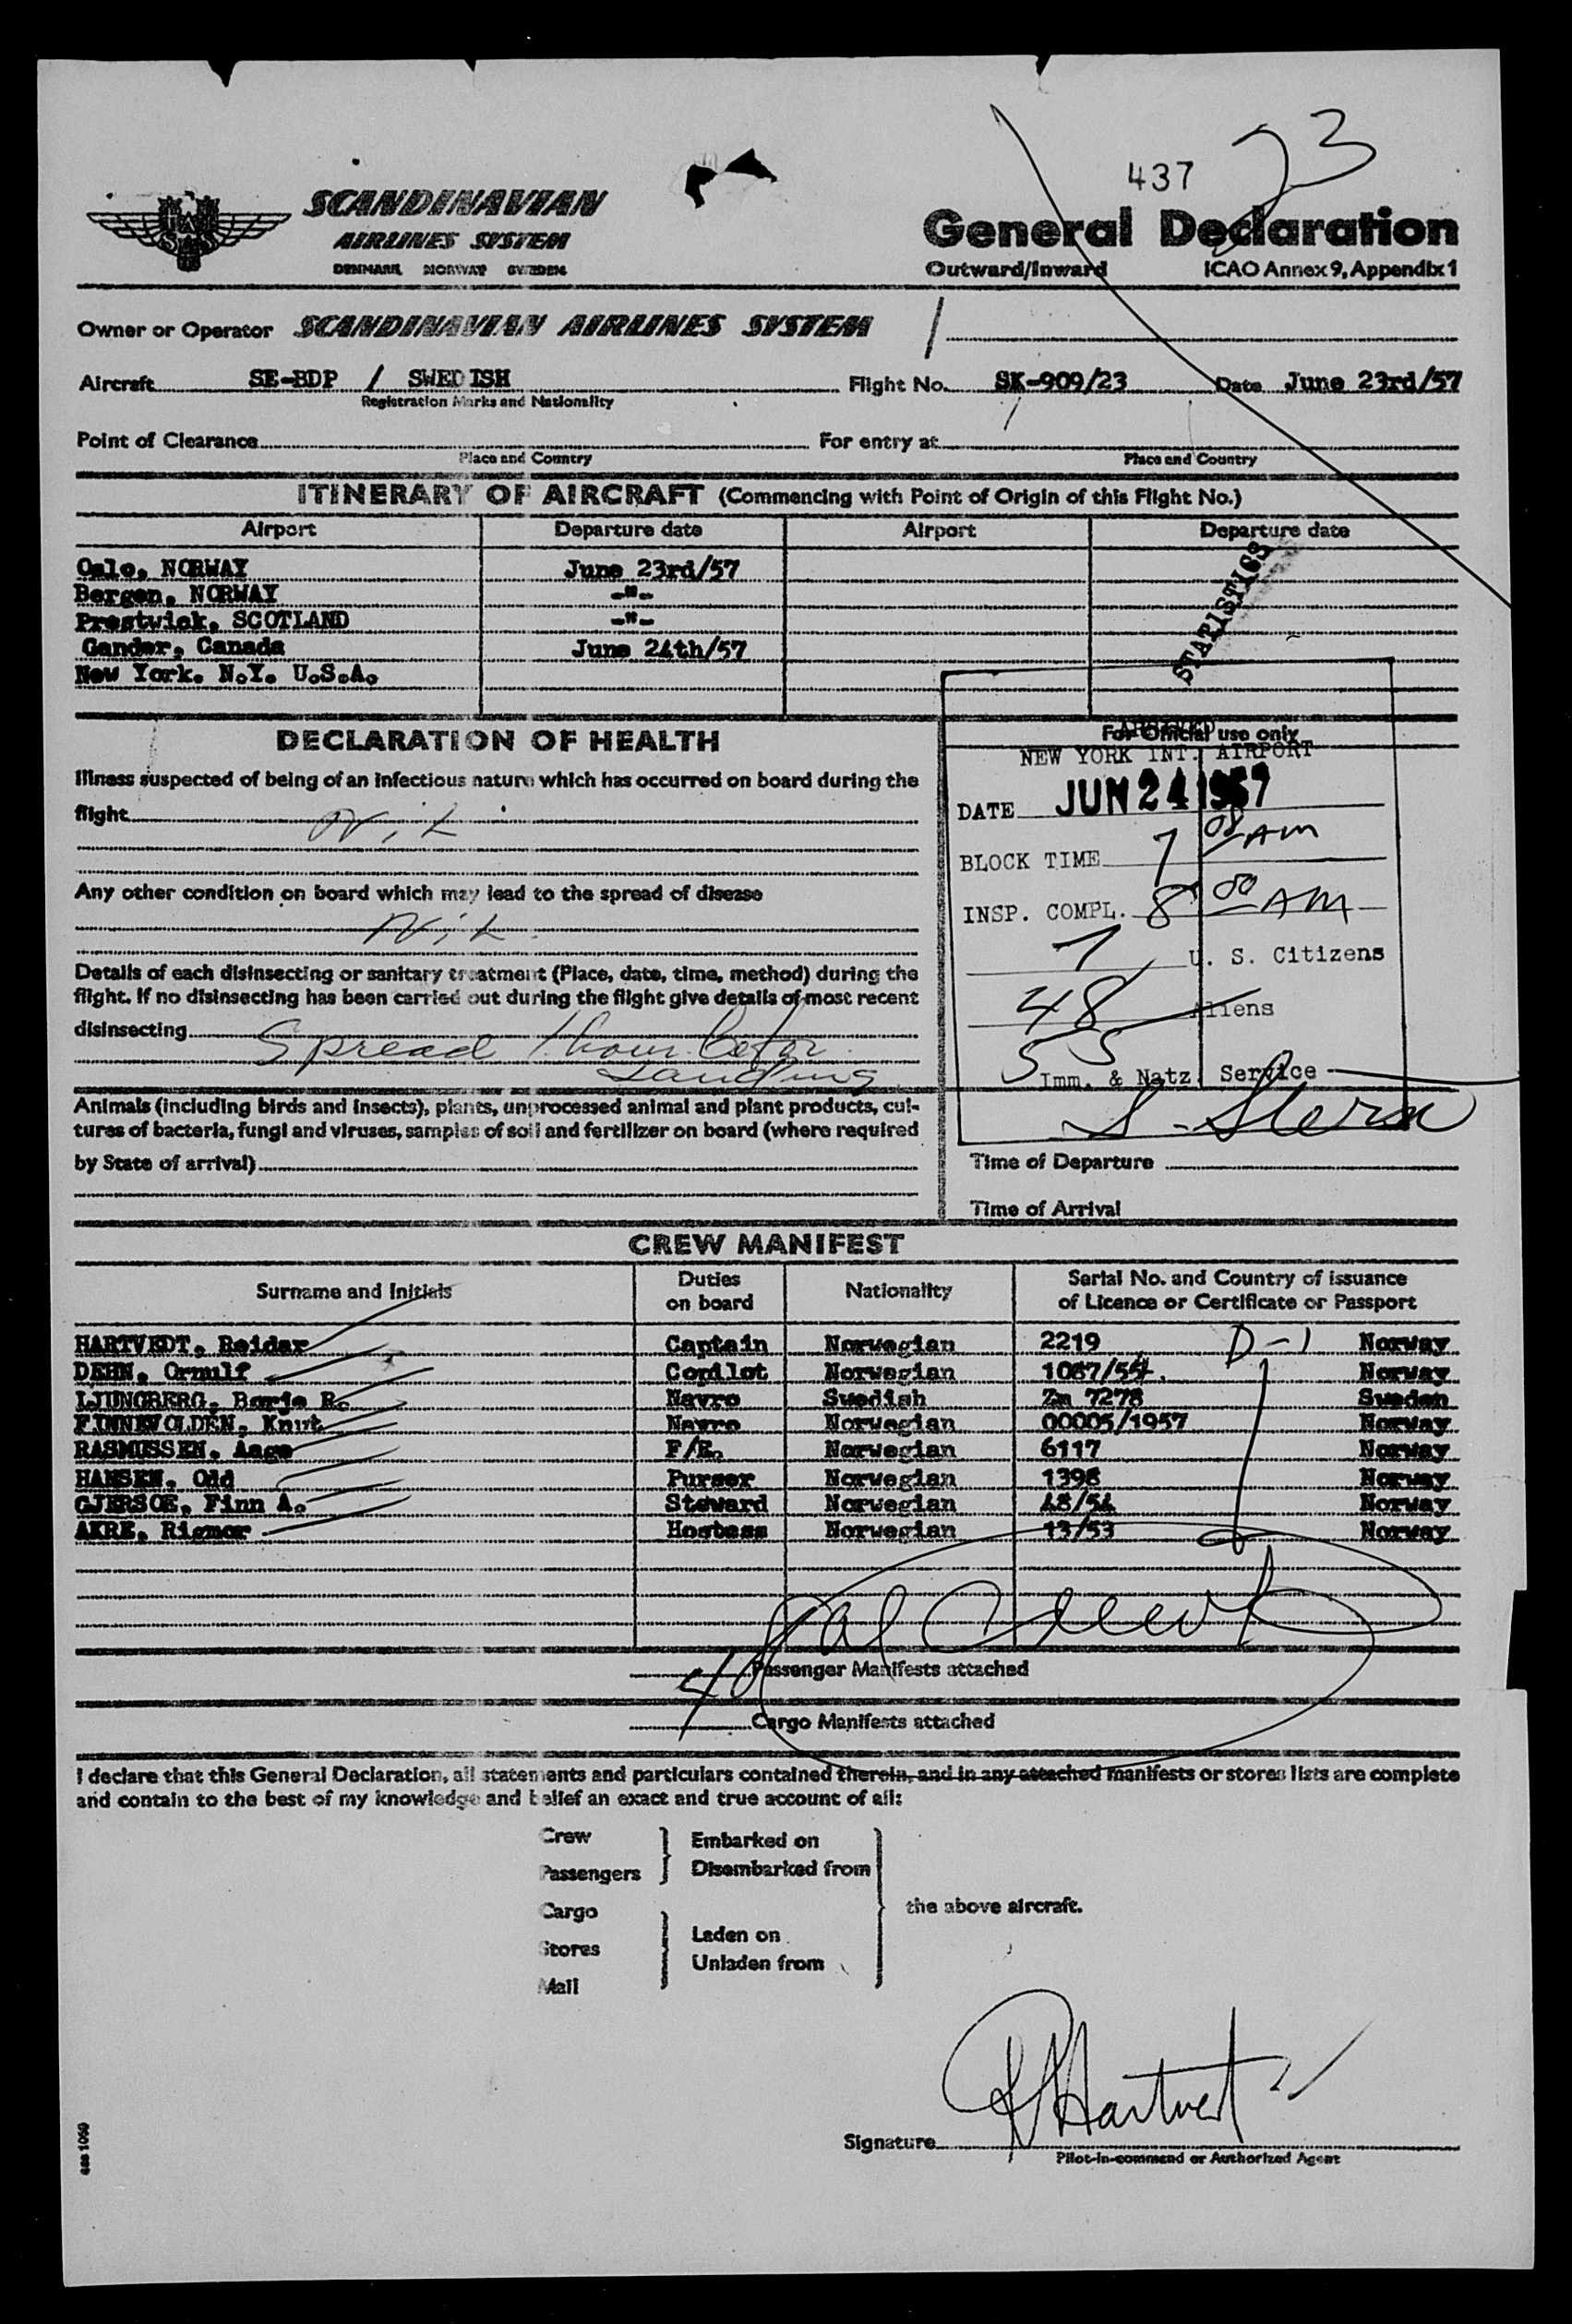 437 23
SCANDINAVIAN
AIRLINES SYSTEM
DENMARK NORWAY SWEDEN
General Declaration
Outward/Inward ICAO Annex 9, Appendix 1
Owner or Operator SCANDINAVIAN AIRLINES SYSTEM
Aircraft SE-BDP / SWEDISH Flight No. SK-909/23 Date June 23rd/57
Registration Marks and Nationality
Point of Clearance For entry at
Place and Country Place and Country
ITINERARY OF AIRCRAFT (Commencing with Point of Origin of this Flight No.)
Airport Departure date Airport Departure date
Oslo, NORWAY June 23rd/57
Bergen, NORWAY -"-
Prestwick, SCOTLAND -"-
Gander, Canada June 24th/57
New York. N.Y. U.S.A.
STATISTICS
DECLARATION OF HEALTH
Illness suspected of being of an infectious nature which has occurred on board during the
flight Nil
Any other condition on board which may lead to the spread of disease
Nil
Details of each disinsecting or sanitary treatment (Place, date, time, method) during the
flight. If no disinsecting has been carried out during the flight give details of most recent
disinsecting Spread 1 hour befor
Landing
Animals (including birds and insects), plants, unprocessed animal and plant products, cul-
tures of bacteria, fungi and viruses, samples of soil and fertilizer on board (where required
by State of arrival)
For Official use only
ARRIVED
NEW YORK INT. AIRPORT
DATE JUN 24 1957
BLOCK TIME 7 08 AM
INSP. COMPL. 8 00 AM
7 U. S. Citizens
48 Aliens
55
Imm. & Natz. Service
S. Stern
Time of Departure
Time of Arrival
CREW MANIFEST
Surname and Initials Duties on board Nationality Serial No. and Country of issuance
of Licence or Certificate or Passport
HARTVEDT, Reidar Captain Norwegian 2219 D-1 Norway
DEHN, Ornulf Copilot Norwegian 1087/554. Norway
LJUNGBERG, Borje R. Navro Swedish Zm 7278 Sweden
FINNEVOLDEN, Knut Navro Norwegian 00005/1957 Norway
RASMUSSEN, Aage F/E. Norwegian 6117 Norway
HANSEN, Odd Purser Norwegian 1398 Norway
GJERSOE, Finn A. Steward Norwegian 48/54 Norway
AKRE, Rigmor Hostess Norwegian 13/53 Norway
Passenger Manifests attached
Cargo Manifests attached
I declare that this General Declaration, all statements and particulars contained therein, and in any attached manifests or stores lists are complete
and contain to the best of my knowledge and belief an exact and true account of all:
Crew
Passengers
Embarked on
Disembarked from
Cargo
Stores
Mail
Laden on
Unladen from
the above aircraft.
Signature R Hartvedt
Pilot-in-command or Authorized Agent
sas 1060